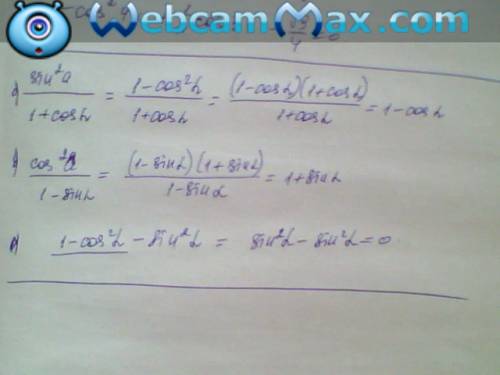 WebcamMax.com
sin²α/(1+cosα) = (1-cos²α)/(1+cosα) = (1-cosα)(1+cosα)/(1+cosα) = 1-cosα
cos²α/(1-sinα) = (1-sinα)(1+sinα)/(1-sinα) = 1+sinα
1-cos²α - sin²α = sin²α - sin²α = 0